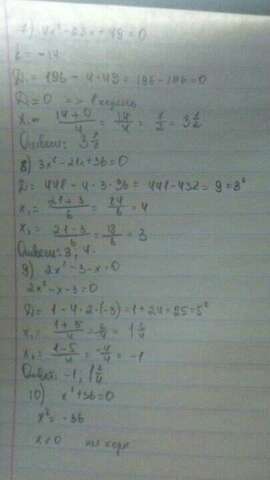 7) 4x² - 28x + 49 = 0
k = -14
D₁ = 196 - 4·49 = 196 - 196 = 0
D₁ = 0 => 1 корень
x₁ = (14+0)/4 = 14/4 = 7/2 = 3 1/2
Ответ: 3 1/2
8) 3x² - 21x + 36 = 0
D = 441 - 4·3·36 = 441 - 432 = 9 = 3²
x₁ = (21+3)/6 = 24/6 = 4
x₂ = (21-3)/6 = 18/6 = 3
Ответ: 3, 4.
9) 2x² - 3 - x = 0
2x² - x - 3 = 0
D = 1 - 4·2·(-3) = 1 + 24 = 25 = 5²
x₁ = (1+5)/4 = 6/4 = 1 2/4
x₂ = (1-5)/4 = -4/4 = -1
Ответ: -1, 1 2/4
10) x² + 36 = 0
x² = -36
нет корн